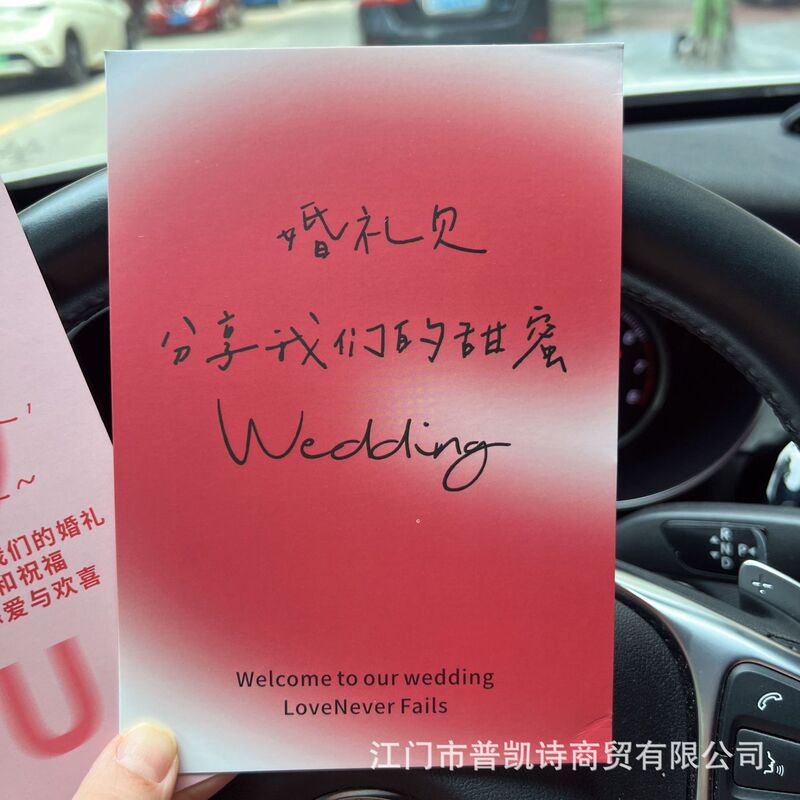 婚礼见
分享我们的甜蜜
Wedding
Welcome to our wedding
LoveNever Fails
我们的婚礼
和祝福
爱与欢喜
U
R
N
D
P
江门市普凯诗商贸有限公司